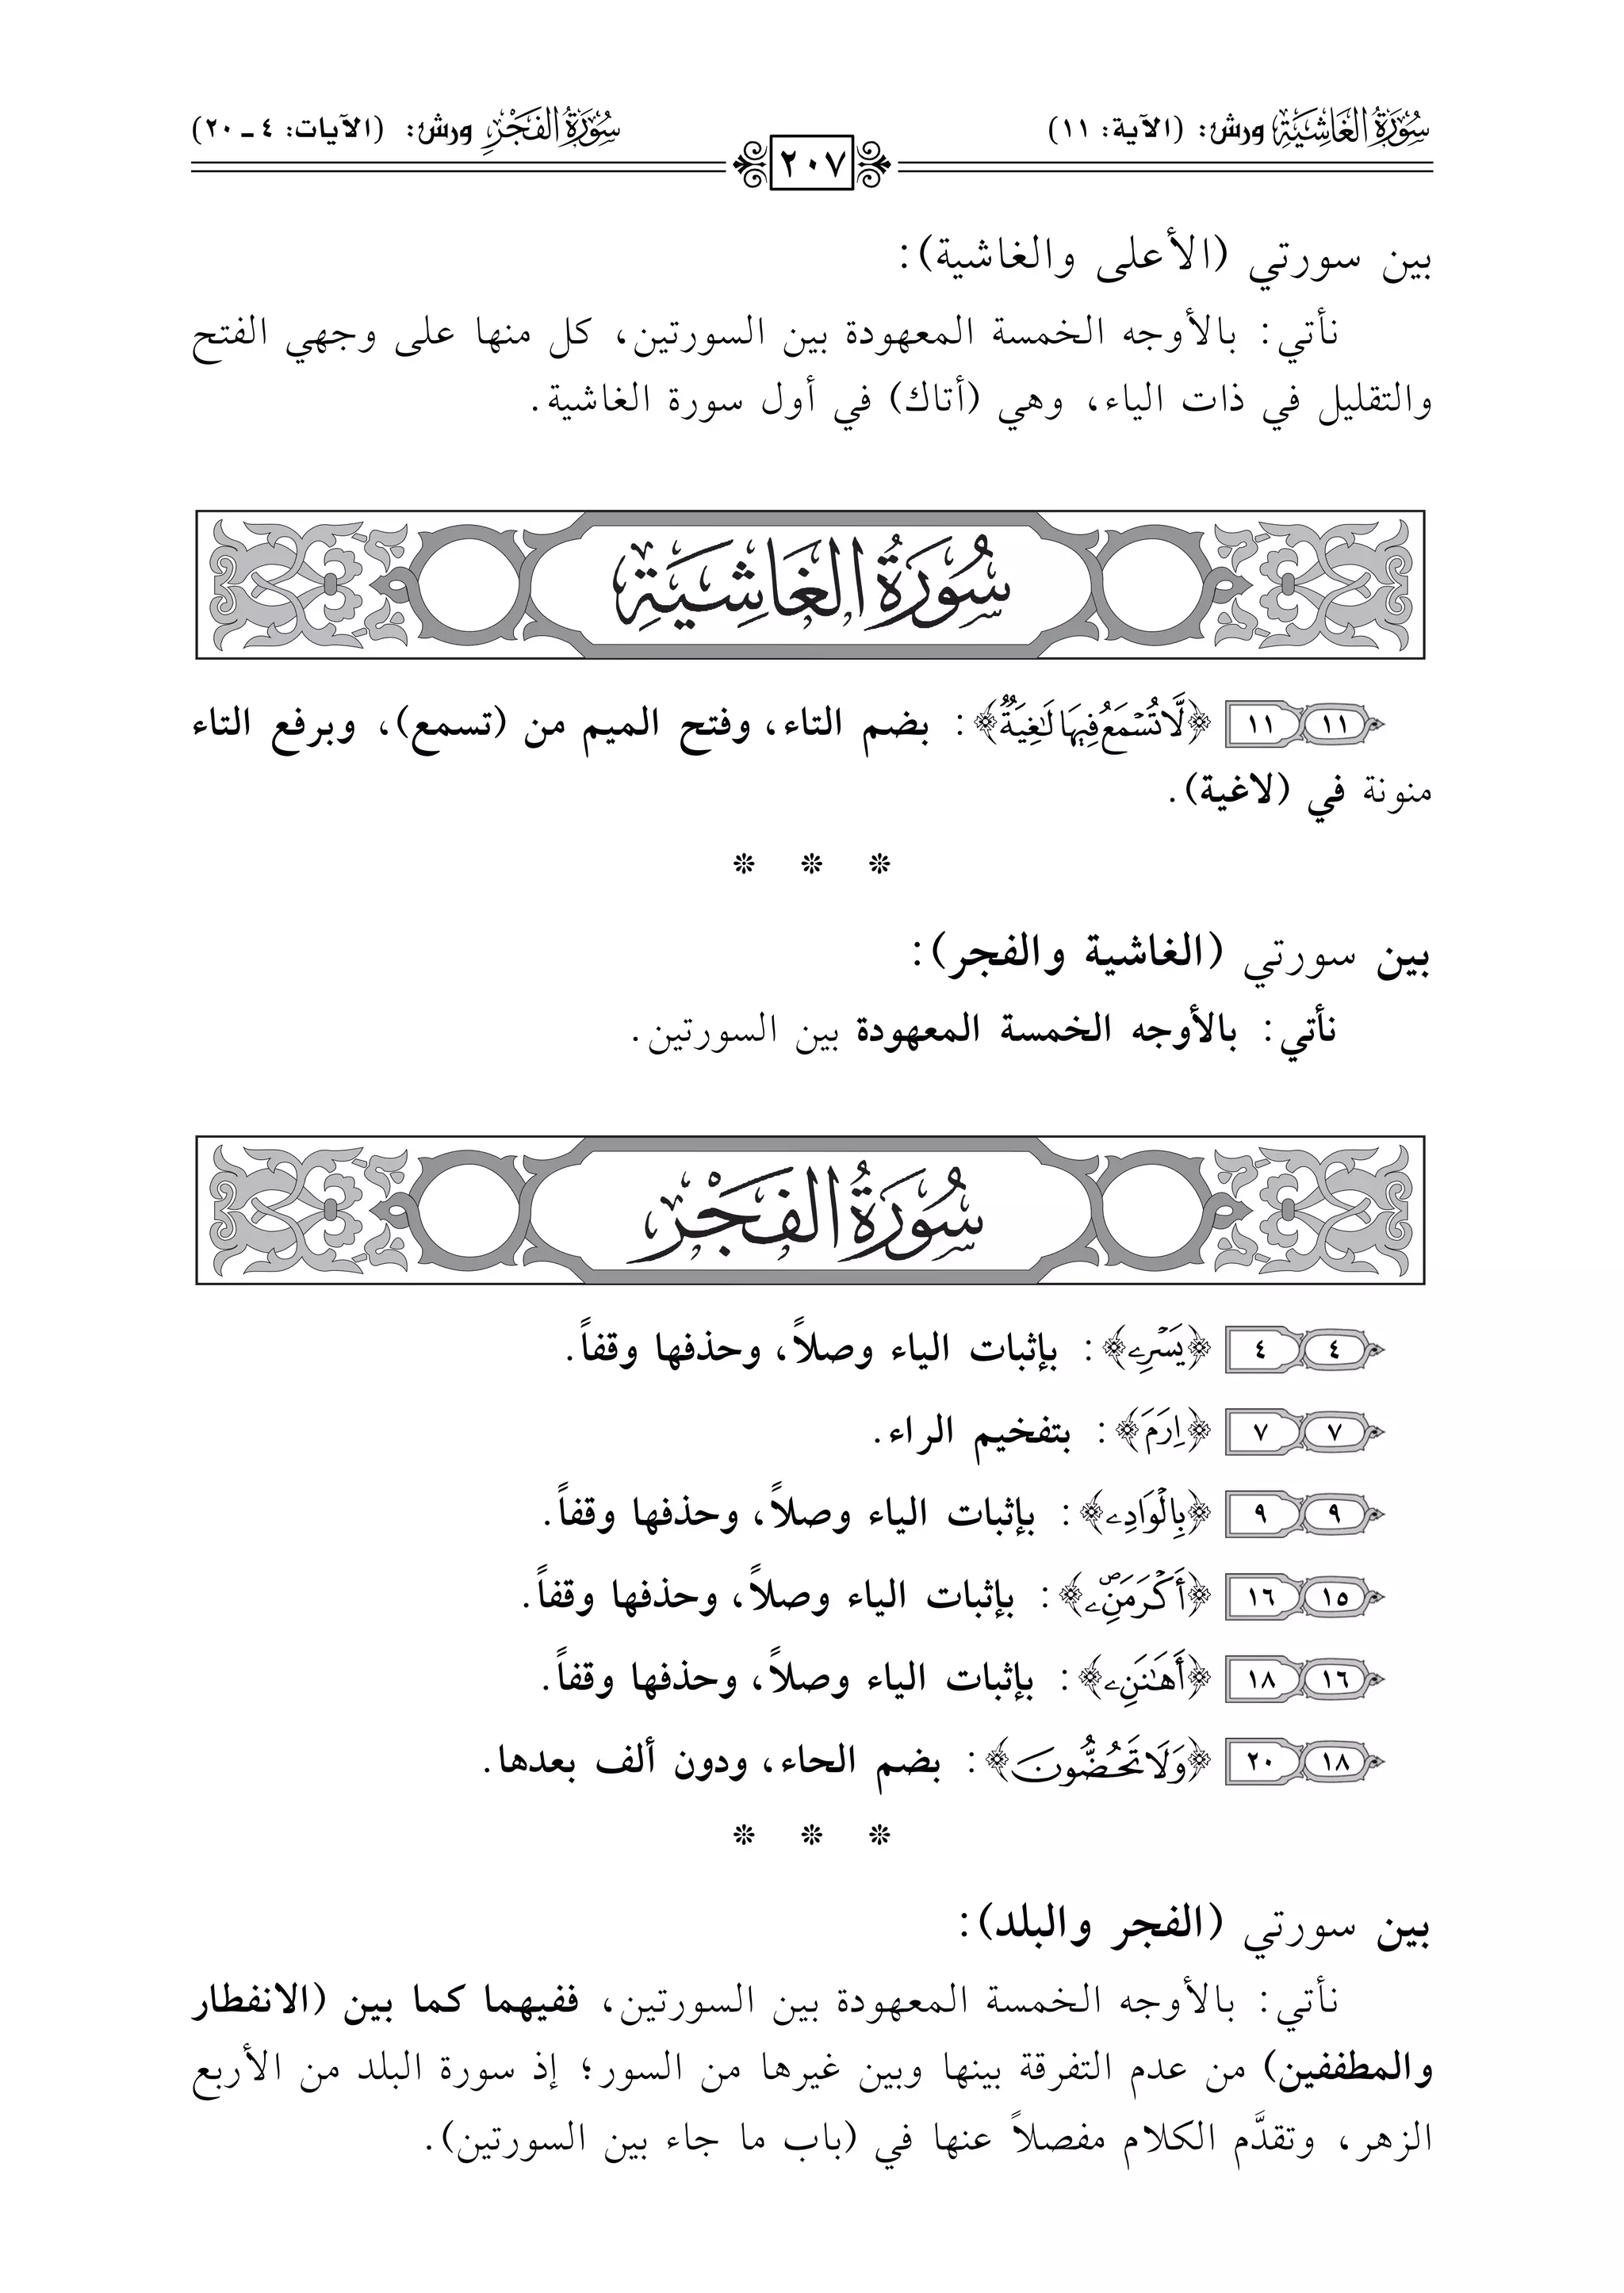 سُورَةُ الغَاشِيَةِ ورش: (الآية: ١١)
سُورَةُ الفَجْرِ ورش: (الآيات: ٤ ـ ٢٠)
٢٠٧
بين سورتي (الأعلى والغاشية):
نأتي: بالأوجه الخمسة المعهودة بين السورتين، كل منها على وجهي الفتح
والتقليل في ذات الياء، وهي (أتاك) في أول سورة الغاشية.
سُورَةُ الغَاشِيَةِ
١١ ١١ ﴿لَّا تُسْمَعُ فِيهَا لَٰغِيَةٌ﴾: بضم التاء، وفتح الميم من (تسمع)، وبرفع التاء
منونة في (لاغية).
* * *
بين سورتي (الغاشية والفجر):
نأتي: بالأوجه الخمسة المعهودة بين السورتين.
سُورَةُ الفَجْرِ
٤ ٤ ﴿يَسْرِۦ﴾: بإثبات الياء وصلاً، وحذفها وقفاً.
٧ ٧ ﴿إِرَمَ﴾: بتفخيم الراء.
٩ ٩ ﴿بِالْوَادِۦ﴾: بإثبات الياء وصلاً، وحذفها وقفاً.
١٥ ١٦ ﴿أَكْرَمَنِۦ﴾: بإثبات الياء وصلاً، وحذفها وقفاً.
١٦ ١٨ ﴿أَهَٰنَنِۦ﴾: بإثبات الياء وصلاً، وحذفها وقفاً.
١٨ ٢٠ ﴿وَلَا تَحُضُّونَ﴾: بضم الحاء، ودون ألف بعدها.
* * *
بين سورتي (الفجر والبلد):
نأتي: بالأوجه الخمسة المعهودة بين السورتين، ففيهما كما بين (الانفطار
والمطففين) من عدم التفرقة بينها وبين غيرها من السور؛ إذ سورة البلد من الأربع
الزهر، وتقدَّم الكلام مفصلاً عنها في (باب ما جاء بين السورتين).